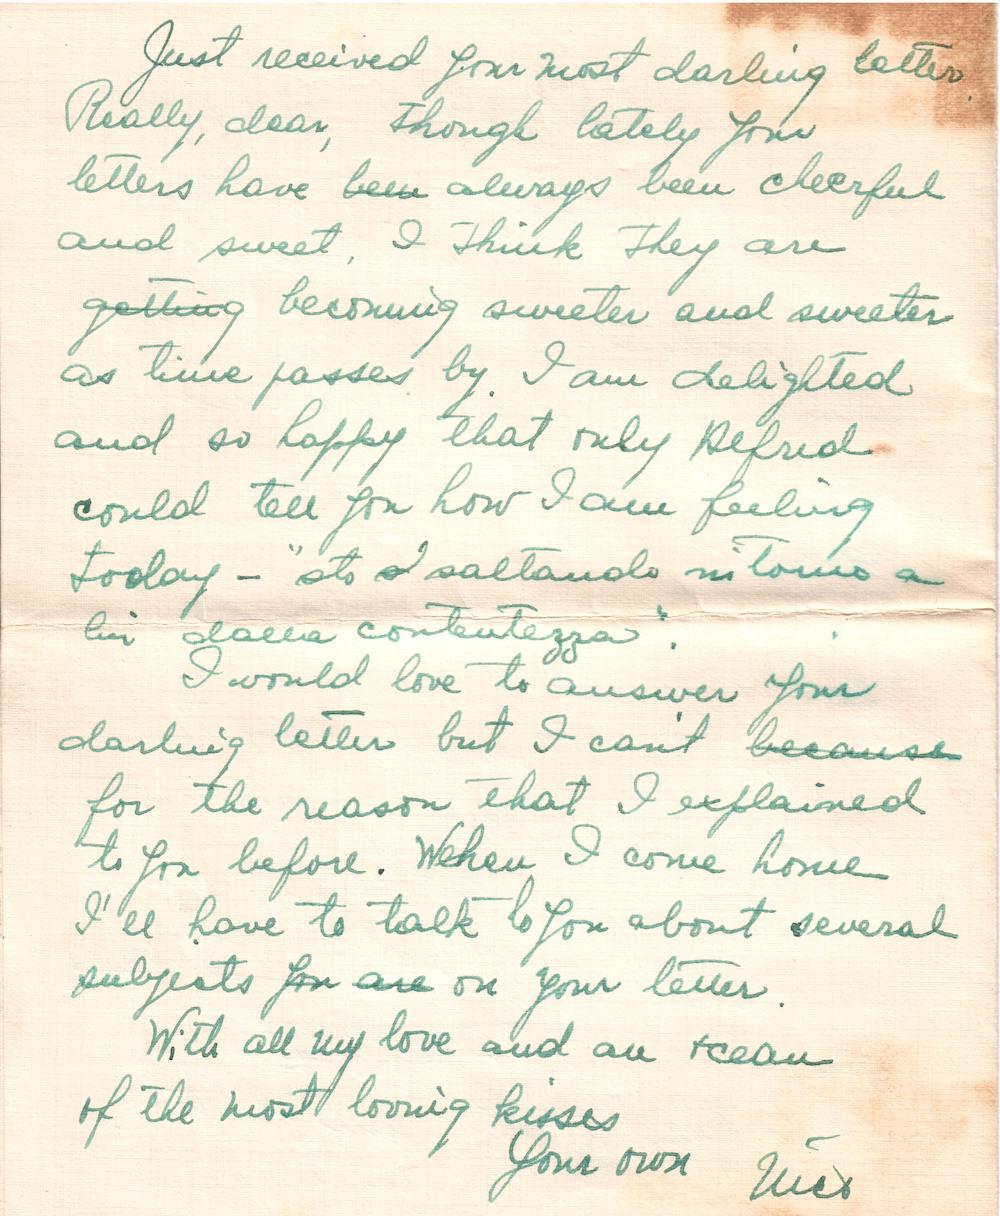 Just received your most darling letter.
Really, dear, though lately your
letters have been always been cheerful
and sweet, I think they are
getting becoming sweeter and sweeter
as time passes by. I am delighted
and so happy that only Alfred
could tell you how I am feeling
today - "sto saltando intorno a
lui dalla contentezza".
I would love to answer your
darling letter but I can't because
for the reason that I explained
to you before. When I come home
I'll have to talk to you about several
subjects you are on your letter.
With all my love and an ocean
of the most loving kisses
Your own Nico